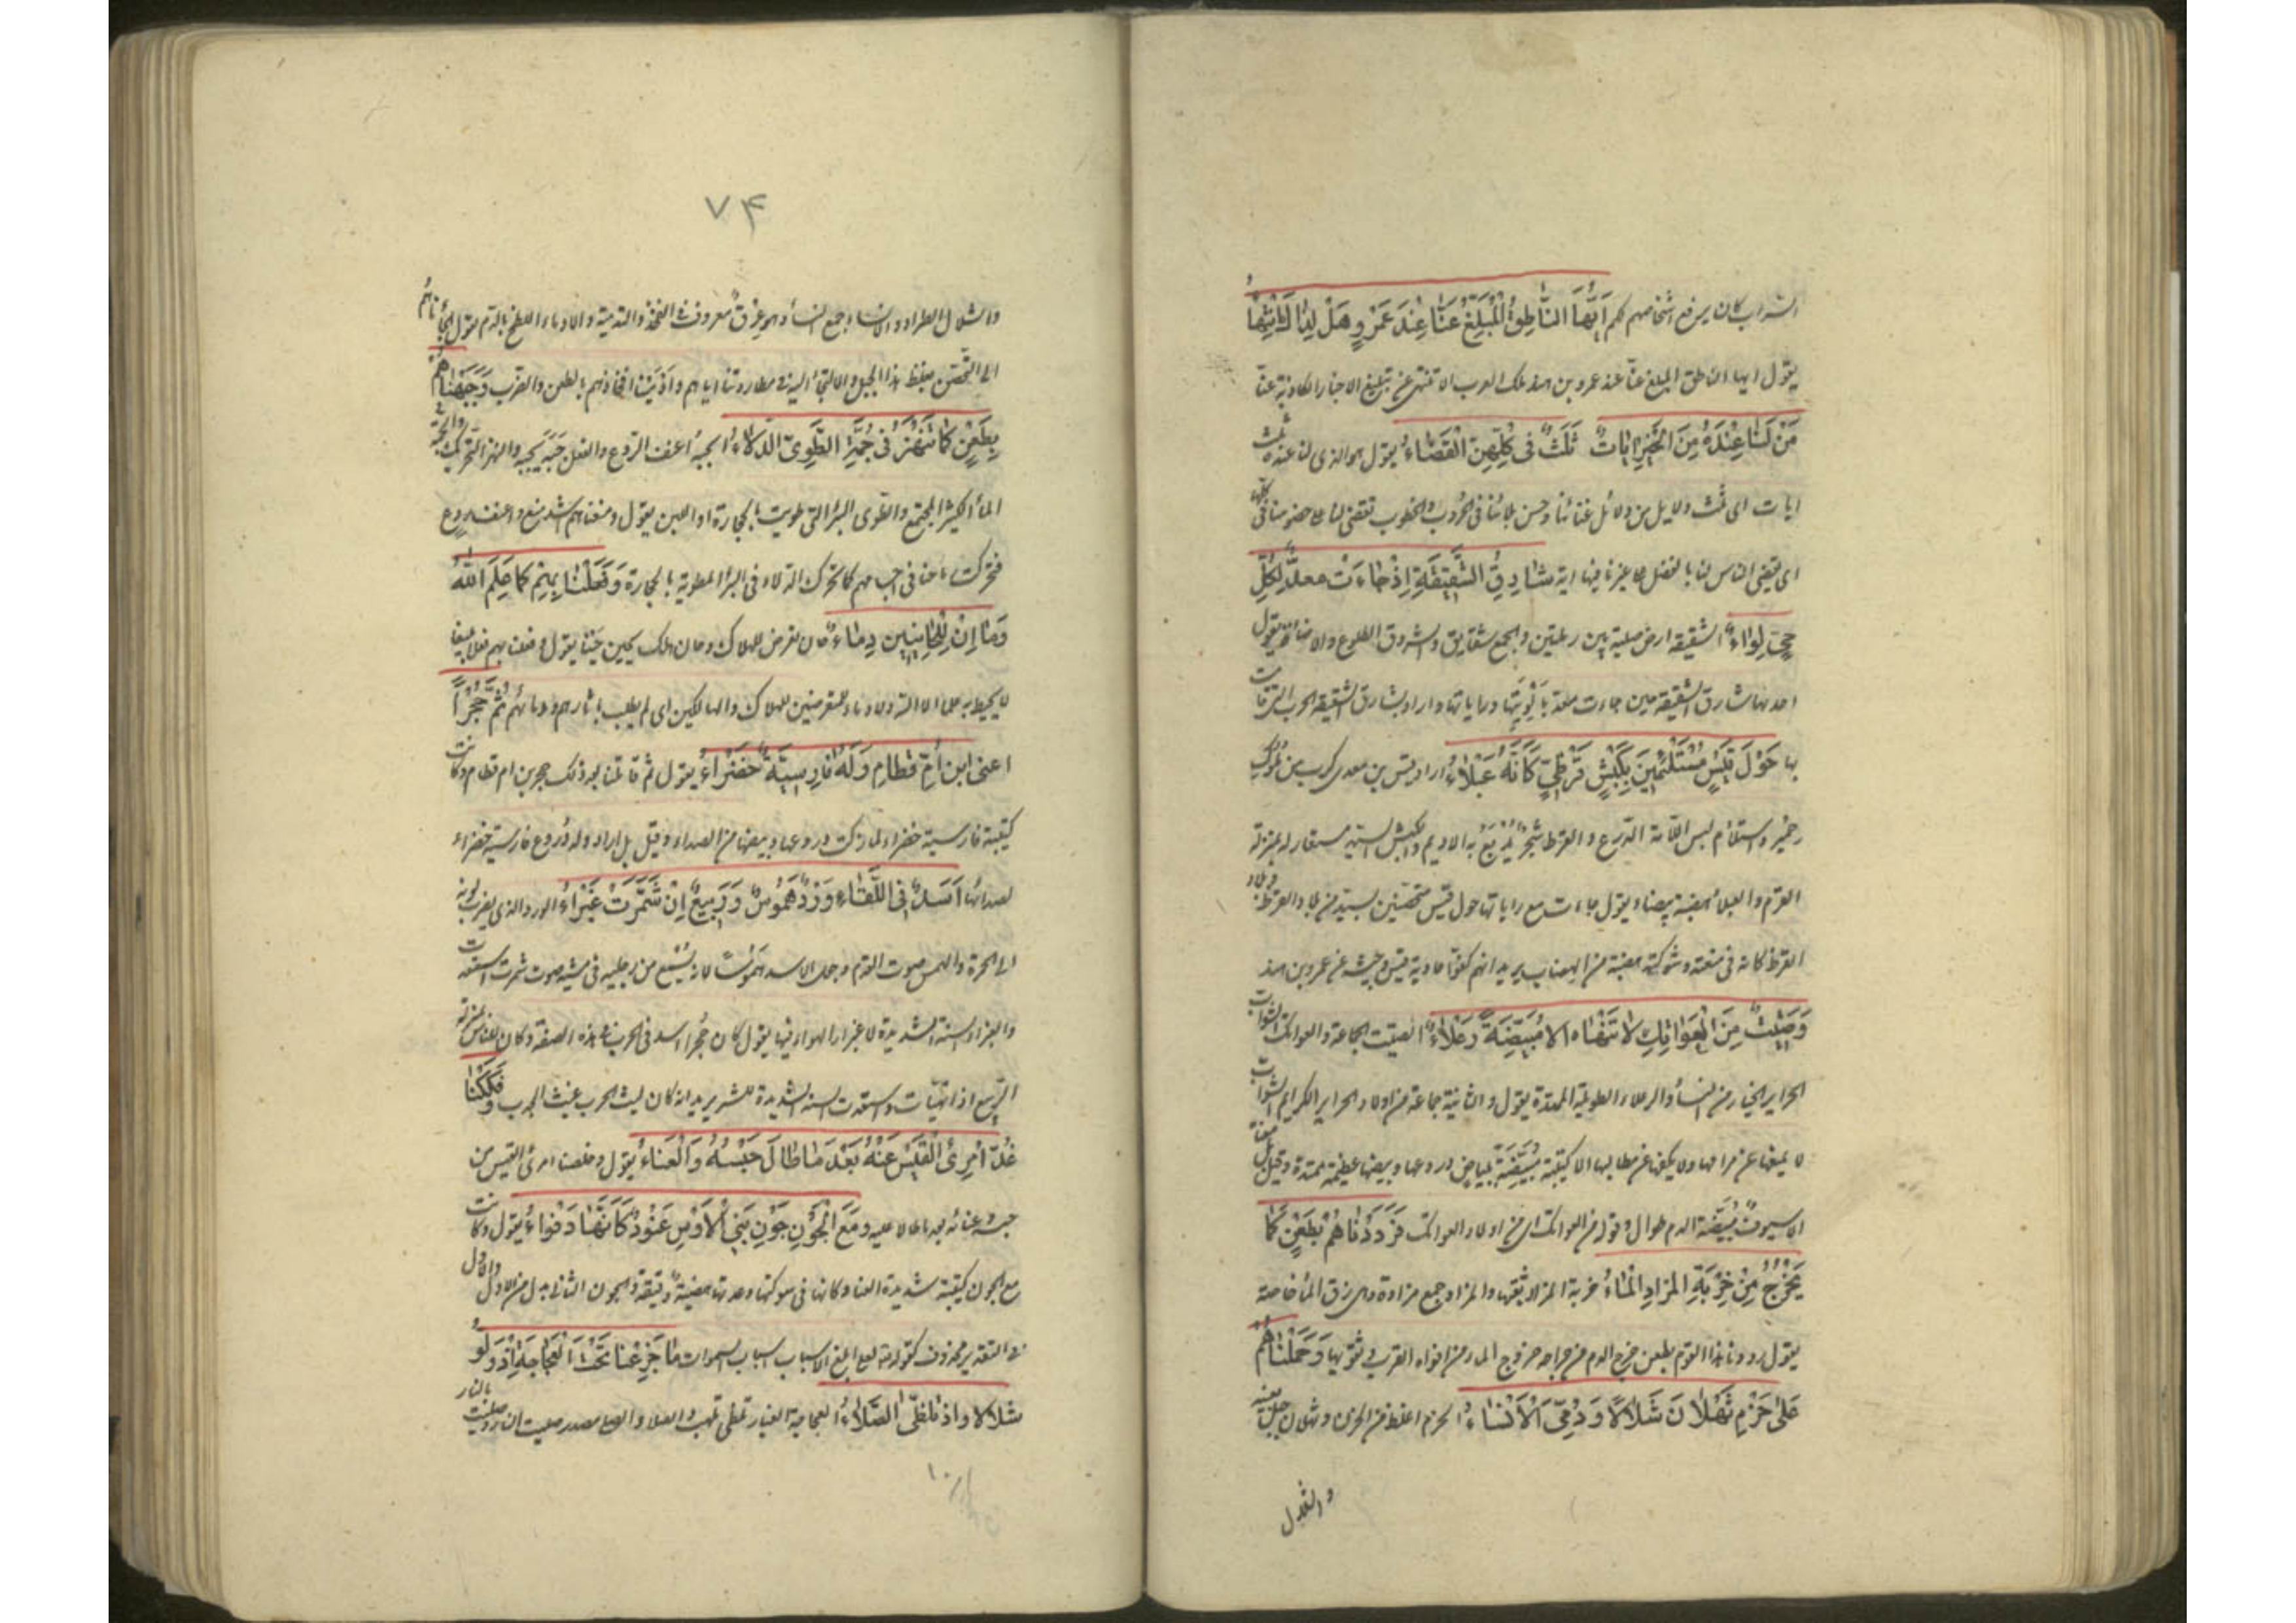 السراب كان يرفع اشخاصهم لكم اَيُّهَا النَّاطِقُ الْمُبَلِّغُ عَنَّا عِنْدَ عَمْرٍو وَهَلْ لِذَاكَ انْتِهَاءُ
يقول ايها الناطق المبلغ عنا عند عمرو بن هند ملك العرب الا تنتهى عن تبليغ الاخبار الكاذبة عنا
مَنْ لَنَا عِنْدَهُ مِنَ الْخَيْرِ اٰيَاتٌ ثَلٰثٌ فِى كُلِّهِنَّ الْقَضَاءُ يقول هو الذى لنا عنده ثلث
ايات اى ثلث دلايل من دلائل غنائنا وحسن بلائنا فى الحروب والخطوب تقضى لنا على خصومنا فى كلها
اى يقضى الناس لنا بالفضل على غيرنا فيها اٰيَة شَارِقُ الشَّقِيْقَةِ اِذْ جَاءَتْ مَعَدٌّ لِكُلِّ
حَىٍّ لِوَاءٌ الشقيقة ارض صلبة بين رملتين والجمع شقايق والشروق الطلوع والاضاءة يقول
احدها شارق الشقيقة حين جاءت معد بِاَلْوِيَتِهَا وراياتها واراد بشارق الشقيقة الحرب التى قامت
بها حَوْلَ قَيْسٍ مُسْتَلْئِمِيْنَ بِكَبْشٍ قَرَظِىٍّ كَاَنَّهُ عَبْلَاءُ اراد قيس بن معدى كرب من ملوك
حمير واستلام لبس اللامة الدرع والقرظ شجر يُدْبَغُ به الاديم والكبش السيد مستعار له بمنزلة
القرم والعبلاء هضبة بيضاء يقول جاءت مع راياتها حول قيس متحصنين بسيد من بلاد القرظ وبلاد
القرظ كانه فى منعته وشوكته هضبة من الهضاب يريد انهم كفوا عادية قيس وجيشه عن عمرو بن هند
وَصَتِيْتٌ مِنَ الْعَوَاتِكِ لَا تَنْهَاهُ اِلَّا مُبْيَضَّةٌ رَعْلَاءُ الصتيت الجماعة والعواتك الشواب
الحراير الخيار من النساء والرعلاء الطويلة الممتدة يقول والثانية جماعة من اولاد الحراير الكرايم الشواب
لا يمنعها عن مرامها ولا يكفها عن مطالبها الا كتيبة مُبْيَضَّةٌ ببياض دروعها وبيضها عظيمة ممتدة وقيل بل معناه
الا سيوف مُبْيَضَّة الدم طوال وقوله من العواتك اى من اولاد العواتك فَرَدَدْنَاهُمْ بِطَعْنٍ كَمَا
يَخْرُجُ مِنْ خُرْبَةِ الْمَزَادِ الْمَاءُ خربة المزاد ثقبها والمزاد جمع مزادة وهى زق الماء خاصة
يقول رددنا هذا القوم بطعن خرج الدم من جراحه خروج الماء من افواه القرب وثقوبها وَحَمَلْنَاهُمْ
عَلٰى حَزْمِ ثَهْلَانَ شَلَالًا وَدُمِّىَ الْاَنْسَاءُ الحزم اغلظ من الحزن وثهلان جبل بعينه
والشلال
٧٤
والشلال الطراد والانساء جمع النساء وهو عرق معروف فى الفخذ والتدمية والادماء اللطخ بالدم يقول الجاناهم
الى التحصن بغلظ هذا الجبل والالتجاء اليه فى مطاردتنا اياهم وادمينا افخاذهم بالطعن والضرب وَجَبَهْنَاهُمْ
بِطَعْنٍ كَمَا تُنْهَزُ فِى جُمَّةِ الطَّوِىِّ الدِّلَاءُ الجبه اعنف الردع والفعل جَبَهَ يجبه والنهز التحريك والجمة
الماء الكثير المجتمع والطوى البئر التى طويت بالحجارة او اللبن يقول ومنعناهم اشد منع واعنف ردع
فتحركت رماحنا فى اجسامهم كما تحرك الدلاء فى البئر المطوية بالحجارة وَفَعَلْنَا بِهِمْ كَمَا عَلِمَ اللّٰهُ
وَمَا اِنْ لِلْحَائِنِيْنَ دِمَاءٌ حان تعرض للهلاك وحان هلك يحين حينا يقول وفعلنا بهم فعلا بليغا
لا يحيط به علما الا الله ولا دماء للمتعرضين للهلاك والهالكين اى لم يطلب بثارهم ودمائهم ثُمَّ حُجْرًا
اعنى ابن اُمِّ قَطَامِ وَلَهُ فَارِسِيَّةٌ خَضْرَاءُ يقول ثم قاتلنا بعد ذلك حجر بن ام قطام وكانت
كتيبة فارسية خضراء لما ركب دروعها وبيضها من الصداء وقيل بل اراد وله دروع فارسية خضراء
لصدائها اَسَدٌ فِى اللِّقَاءِ وَرْدٌ هَمُوْسٌ وَرَبِيْعٌ اِنْ شَمَّرَتْ غَبْرَاءُ الورد الذى يضرب لونه
الى الحمرة والهمس صوت القدم وجعل الاسد هموسا لانه يُسْمَع من رجليه فى مشيه صوت شمرت استعدت
والغبراء السنة الشديدة لاغبرار الهواء فيها يقول كان حجر اسدا فى الحرب بهذه الصفة وكان للناس بمنزلة
الربيع اذا تهيأت واستعدت السنة الشديدة للشر يريد انه كان ليث الحرب غيث الجدب وَفَكَكْنَا
غُلَّ امْرِئِ الْقَيْسِ عَنْهُ بَعْدَ مَا طَالَ حَبْسُهُ وَالْعَنَاءُ يقول وخلصنا امرئ القيس من
حبسه وعنائه بعد ما طالا عليه وَمَعَ الْجَوْنِ جَوْنِ بَنِى الْاَوْسِ عَنُوْدٌ كَاَنَّهَا دَفْوَاءُ يقول وكانت
مع الجون كتيبة شديدة العناد كانها فى شوكتها وعدتها هضبة دقيقة والجون الثانى بدل من الاول والاول
فى التقدير محذوف كقوله تعالى لعلى ابلغ الاسباب اسباب السموات مَا جَزِعْنَا تَحْتَ الْعَجَاجَةِ اِذْ وَلَّوْا
شَلَالًا وَاِذْ تَلَظَّى الصِّلَاءُ العجاجة الغبار تلظى تلهب والصلاء والصلى مصدر صليت النار وصليت بالنار